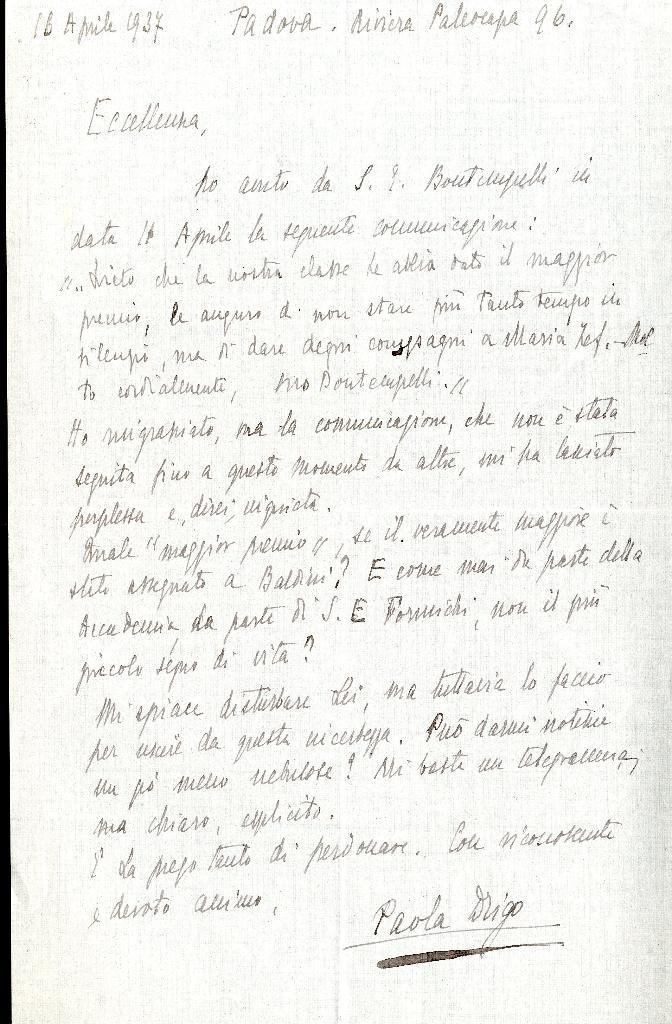 18 Aprile 1937 Padova. Riviera Paleocapa 96.
Eccellenza,
ho avuto da S. E. Bontempelli in
data 14 Aprile la seguente comunicazione:
"Lieto che la nostra classe le abbia dato il maggior
premio, le auguro di non stare più tanto tempo in
silenzio, ma di dare degni compagni a Maria Zef. Mol
to cordialmente, suo Bontempelli."
Ho ringraziato, ma la comunicazione, che non è stata
seguita fino a questo momento da altre, mi ha lasciato
perplessa e, direi, inquieta.
Quale "maggior premio", se il veramente maggiore è
stato assegnato a Baldini? E come mai da parte della
Accademia, da parte di S. E Formichi, non il più
piccolo segno di vita?
Mi spiace disturbare Lei, ma tuttavia lo faccio
per uscire da questa incertezza. Può darmi notizie
un pò meno nebulose? Mi basta un telegramma,
ma chiaro, esplicito.
E La prego tanto di perdonare. Con riconoscente
e devoto animo,
Paola Drigo